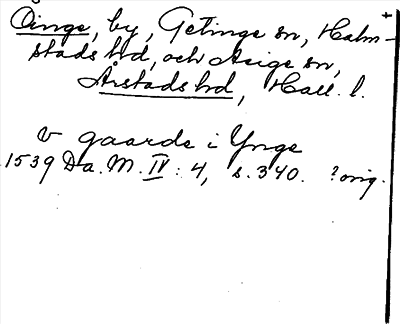 Öinge, by, Getinge sn, Halm-
stads hd, och Asige sn,
Årstads hd, Hall. l.
v gaarde i Ynge
1539 Da. M. IV: 4, s. 340. ? orig.